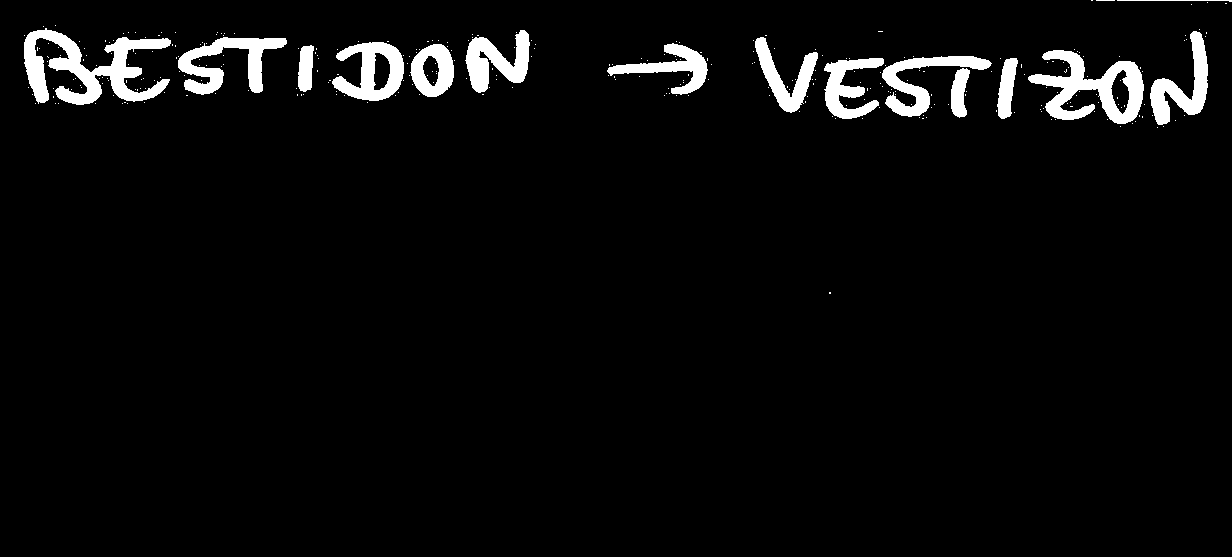 BESTIDON → VESTIZON